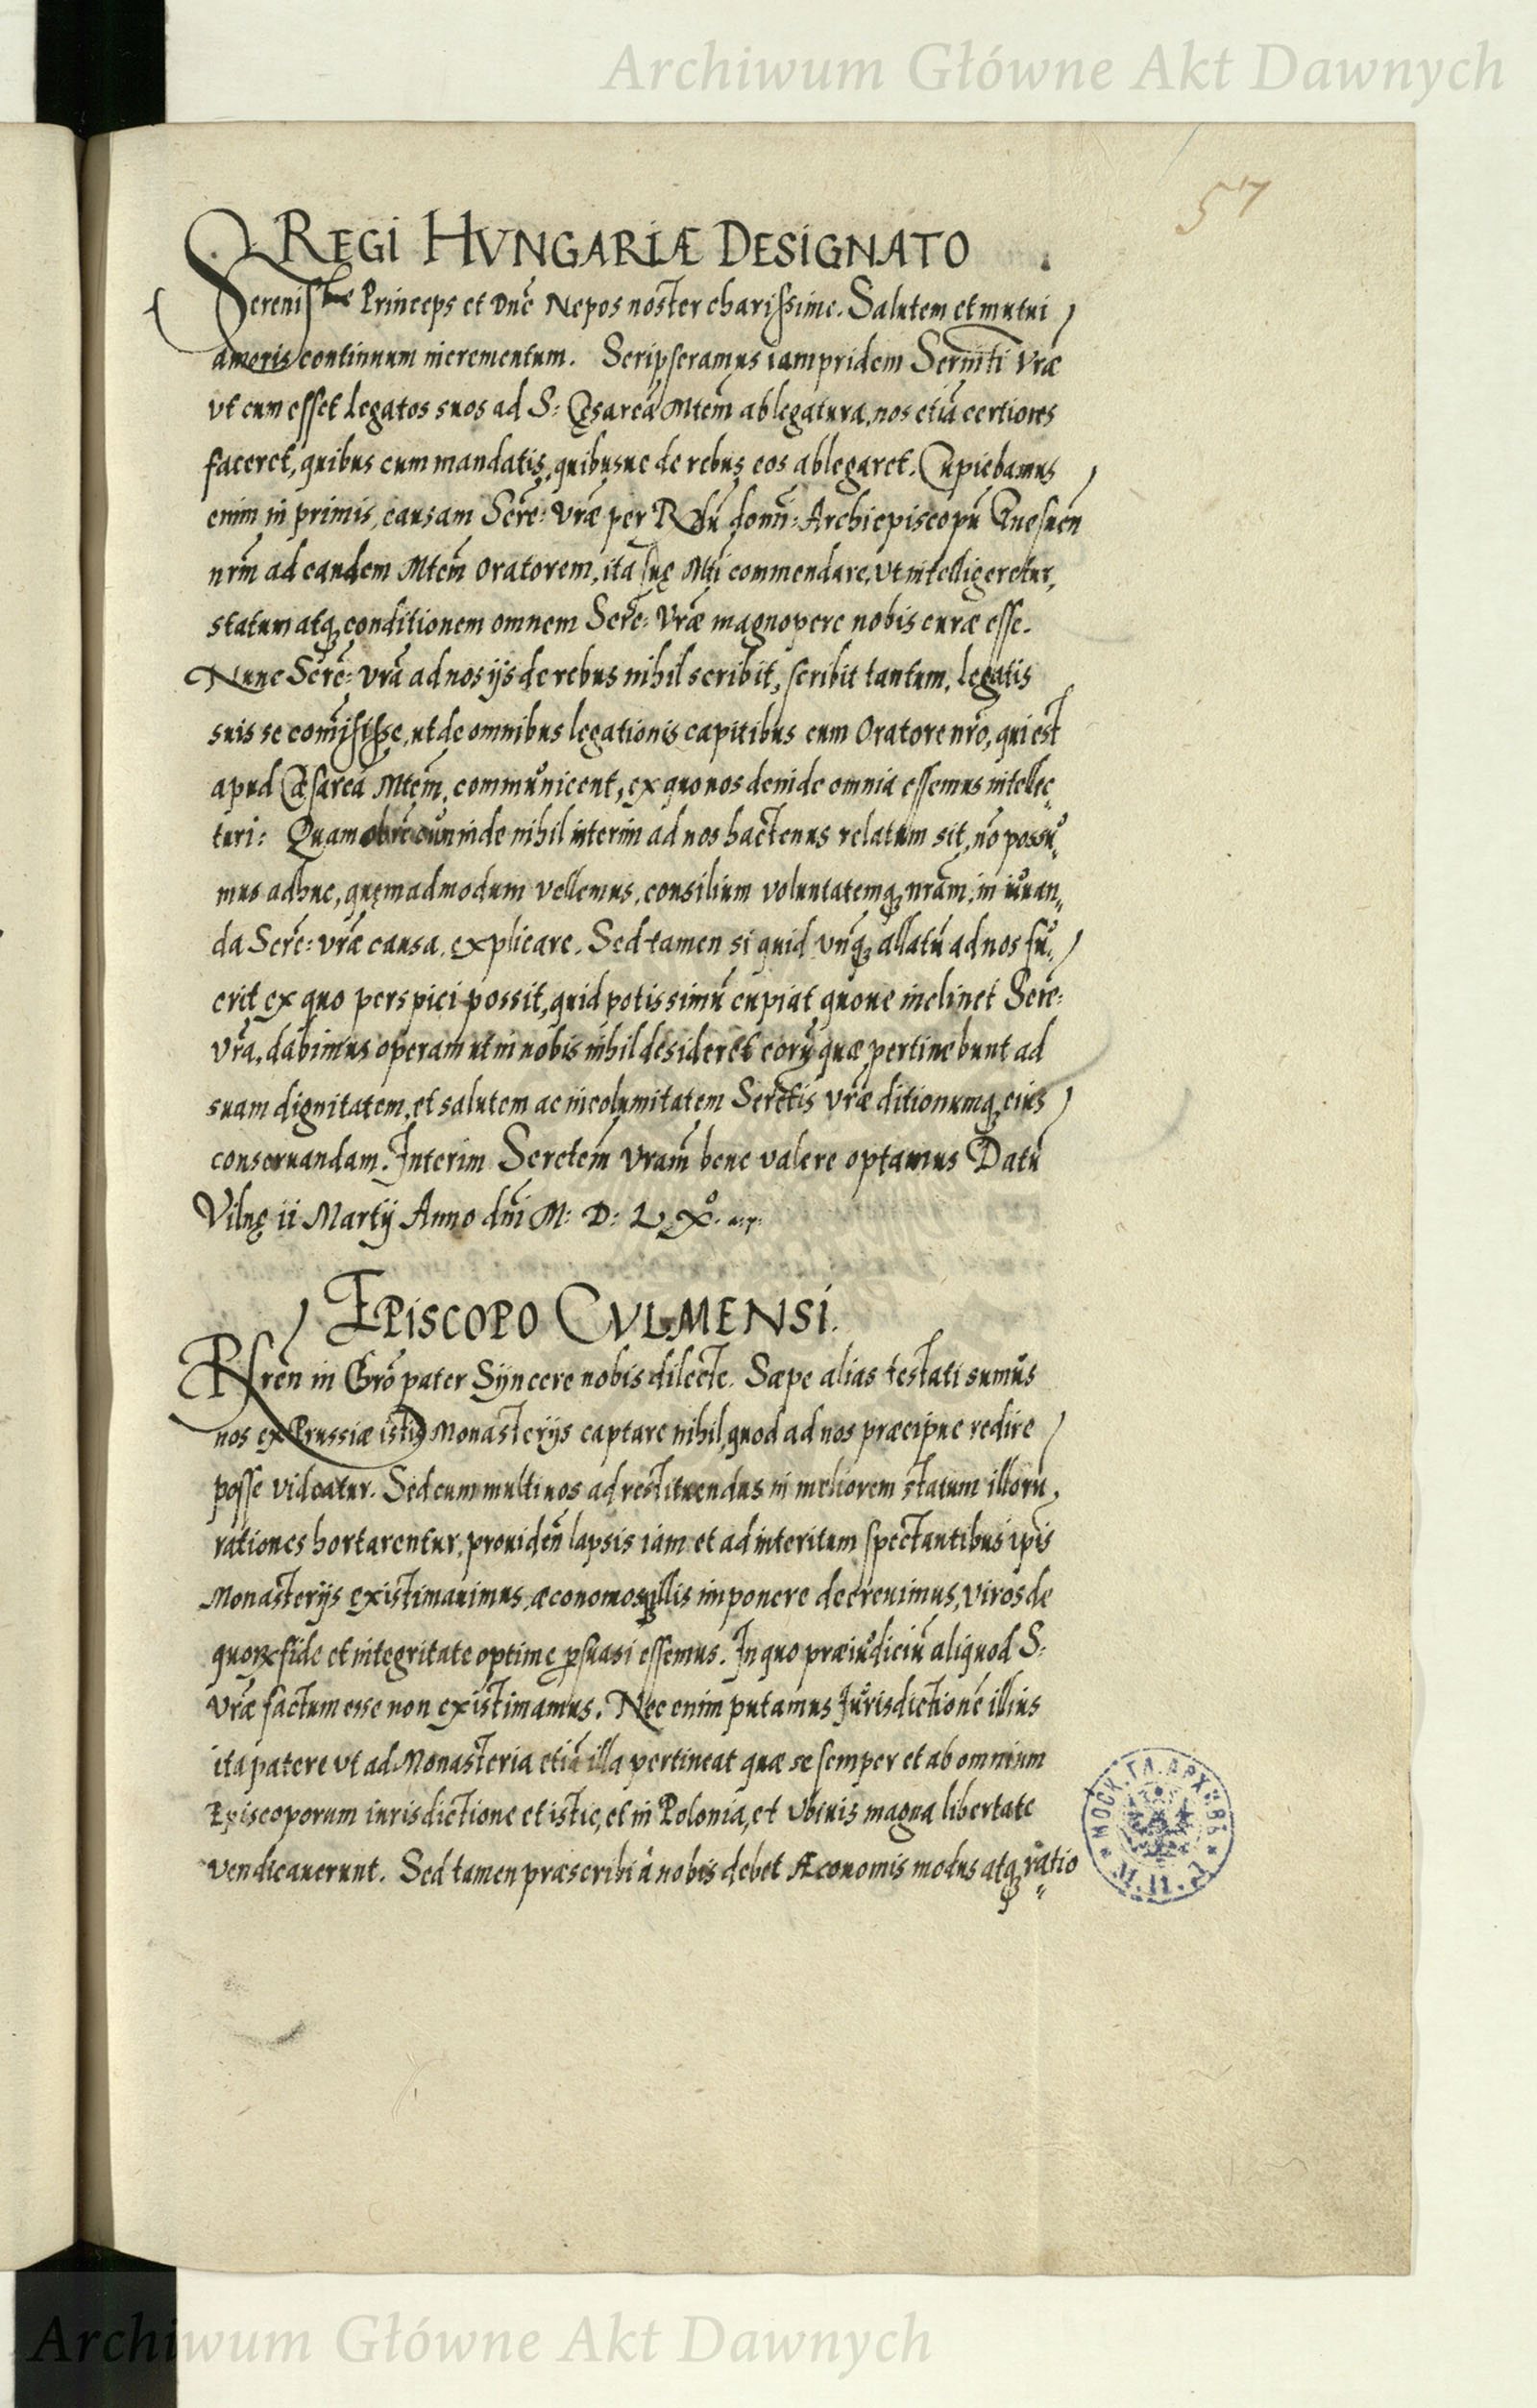 Archiwum Główne Akt Dawnych
57
REGI HVNGARIÆ DESIGNATO
Serenis^me Princeps et Dnē Nepos noster charissime. Salutem et mutui
amoris continuum incrementum. Scripseramus iampridem Sernīti Vræ
vt cum esset legatos suos ad S: Cęsareā Mtēm ablegatura, nos etiā certiores
faceret, quibus cum mandatis, quibusue de rebus eos ablegaret. Cupiebamus
enim in primis, causam Serē: Vræ per Rdū domī: Archiepiscopū Gnesnen̄
nrm̄ ad eandem Mtēm Oratorem, ita suę Mti commendare, vt intelligeretur,
statum atq; conditionem omnem Serē: Vræ magnopere nobis curæ esse.
Nunc Serē: Vrā ad nos ijs de rebus nihil scribit, scribit tantum, legatis
suis se com̄isisse, ut de omnibus legationis capitibus cum Oratore nrō, qui est
apud Cæsareā Mtēm, communicent, ex quo nos deinde omnia essemus intellec„
turi: Quamobrē cum inde nihil interim ad nos hactenus relatum sit, nō possu„
mus adhuc, quęmadmodum vellemus, consilium voluntatemq; nrām, in iuuan„
da Serē: vræ causa, explicare. Sed tamen si quid vnq; allatū ad nos fu„
erit ex quo perspici possit, quid potissimū cupiat quoue inclinet Serē:
Vrā, dabimus operam ut in nobis nihil desideret eorū quæ pertinebunt ad
suam dignitatem, et salutem ac incolumitatem Serētis Vræ ditionumq; eius
conseruandam. Interim Serētēm Vrām bene valere optamus Datū
Vilnę ii Martij Anno dnī M: D: LXº.
EPISCOPO CVLMENSI.
Rn̄ren̄ in Chrō pater Syncere nobis dilecte. Sæpe alias testati sumus
nos ex Prussiæ istis Monasterijs captare nihil, quod ad nos præcipue redire
posse videatur. Sed cum multi nos ad restituendas in meliorem statum illorū
rationes hortarentur, prouiden̄ lapsis iam et ad interitum spectantibus ipīs
Monasterijs existimauimus, æconomosq; illis imponere decreuimus, viros de
quorum fide et integritate optime persuasi essemus. In quo præiudiciū aliquod S:
Vræ factum esse non existimamus. Nec enim putamus Jurisdictionē illius
ita patere vt ad Monasteria etiā illa pertineat quæ se semper et ab omnium
Episcoporum iurisdictione et istic, et in Polonia, et Vbiuis magna libertate
vendicauerunt. Sed tamen præscribi à nobis debet Æconomis modus atq; ratio
МОСК. ГЛ. АРХИВЪ
М. И. Д.
Archiwum Główne Akt Dawnych